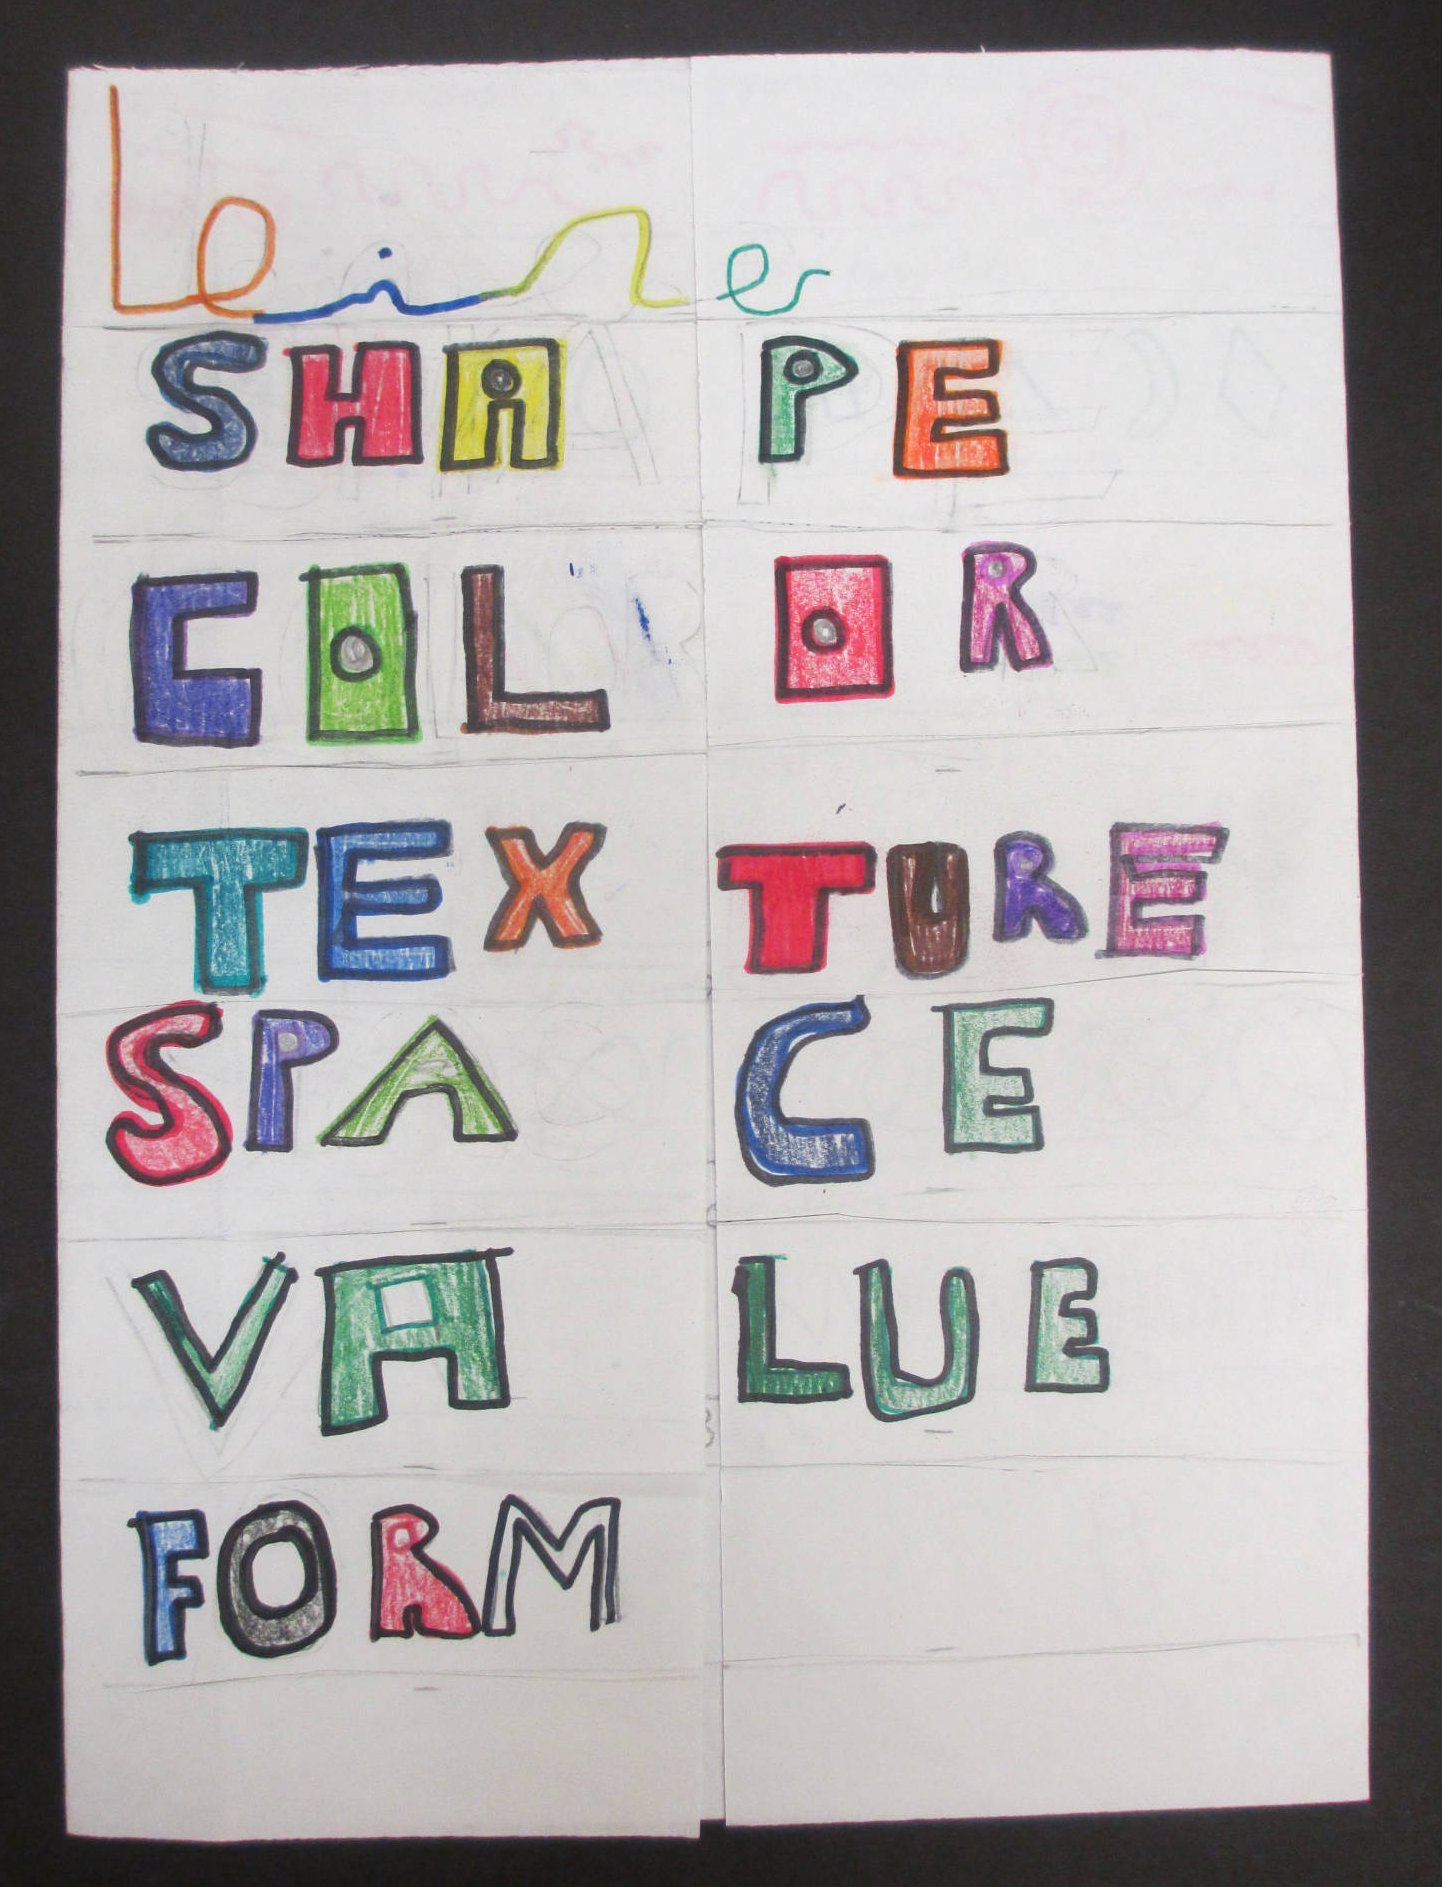 Line
SHAPE
COLOR
TEXTURE
SPACE
VALUE
FORM